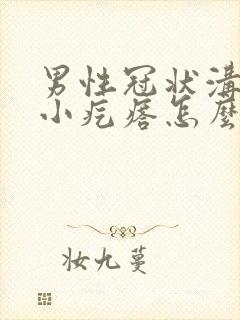 男性冠状溝
小疙瘩怎麼
妝九蔓